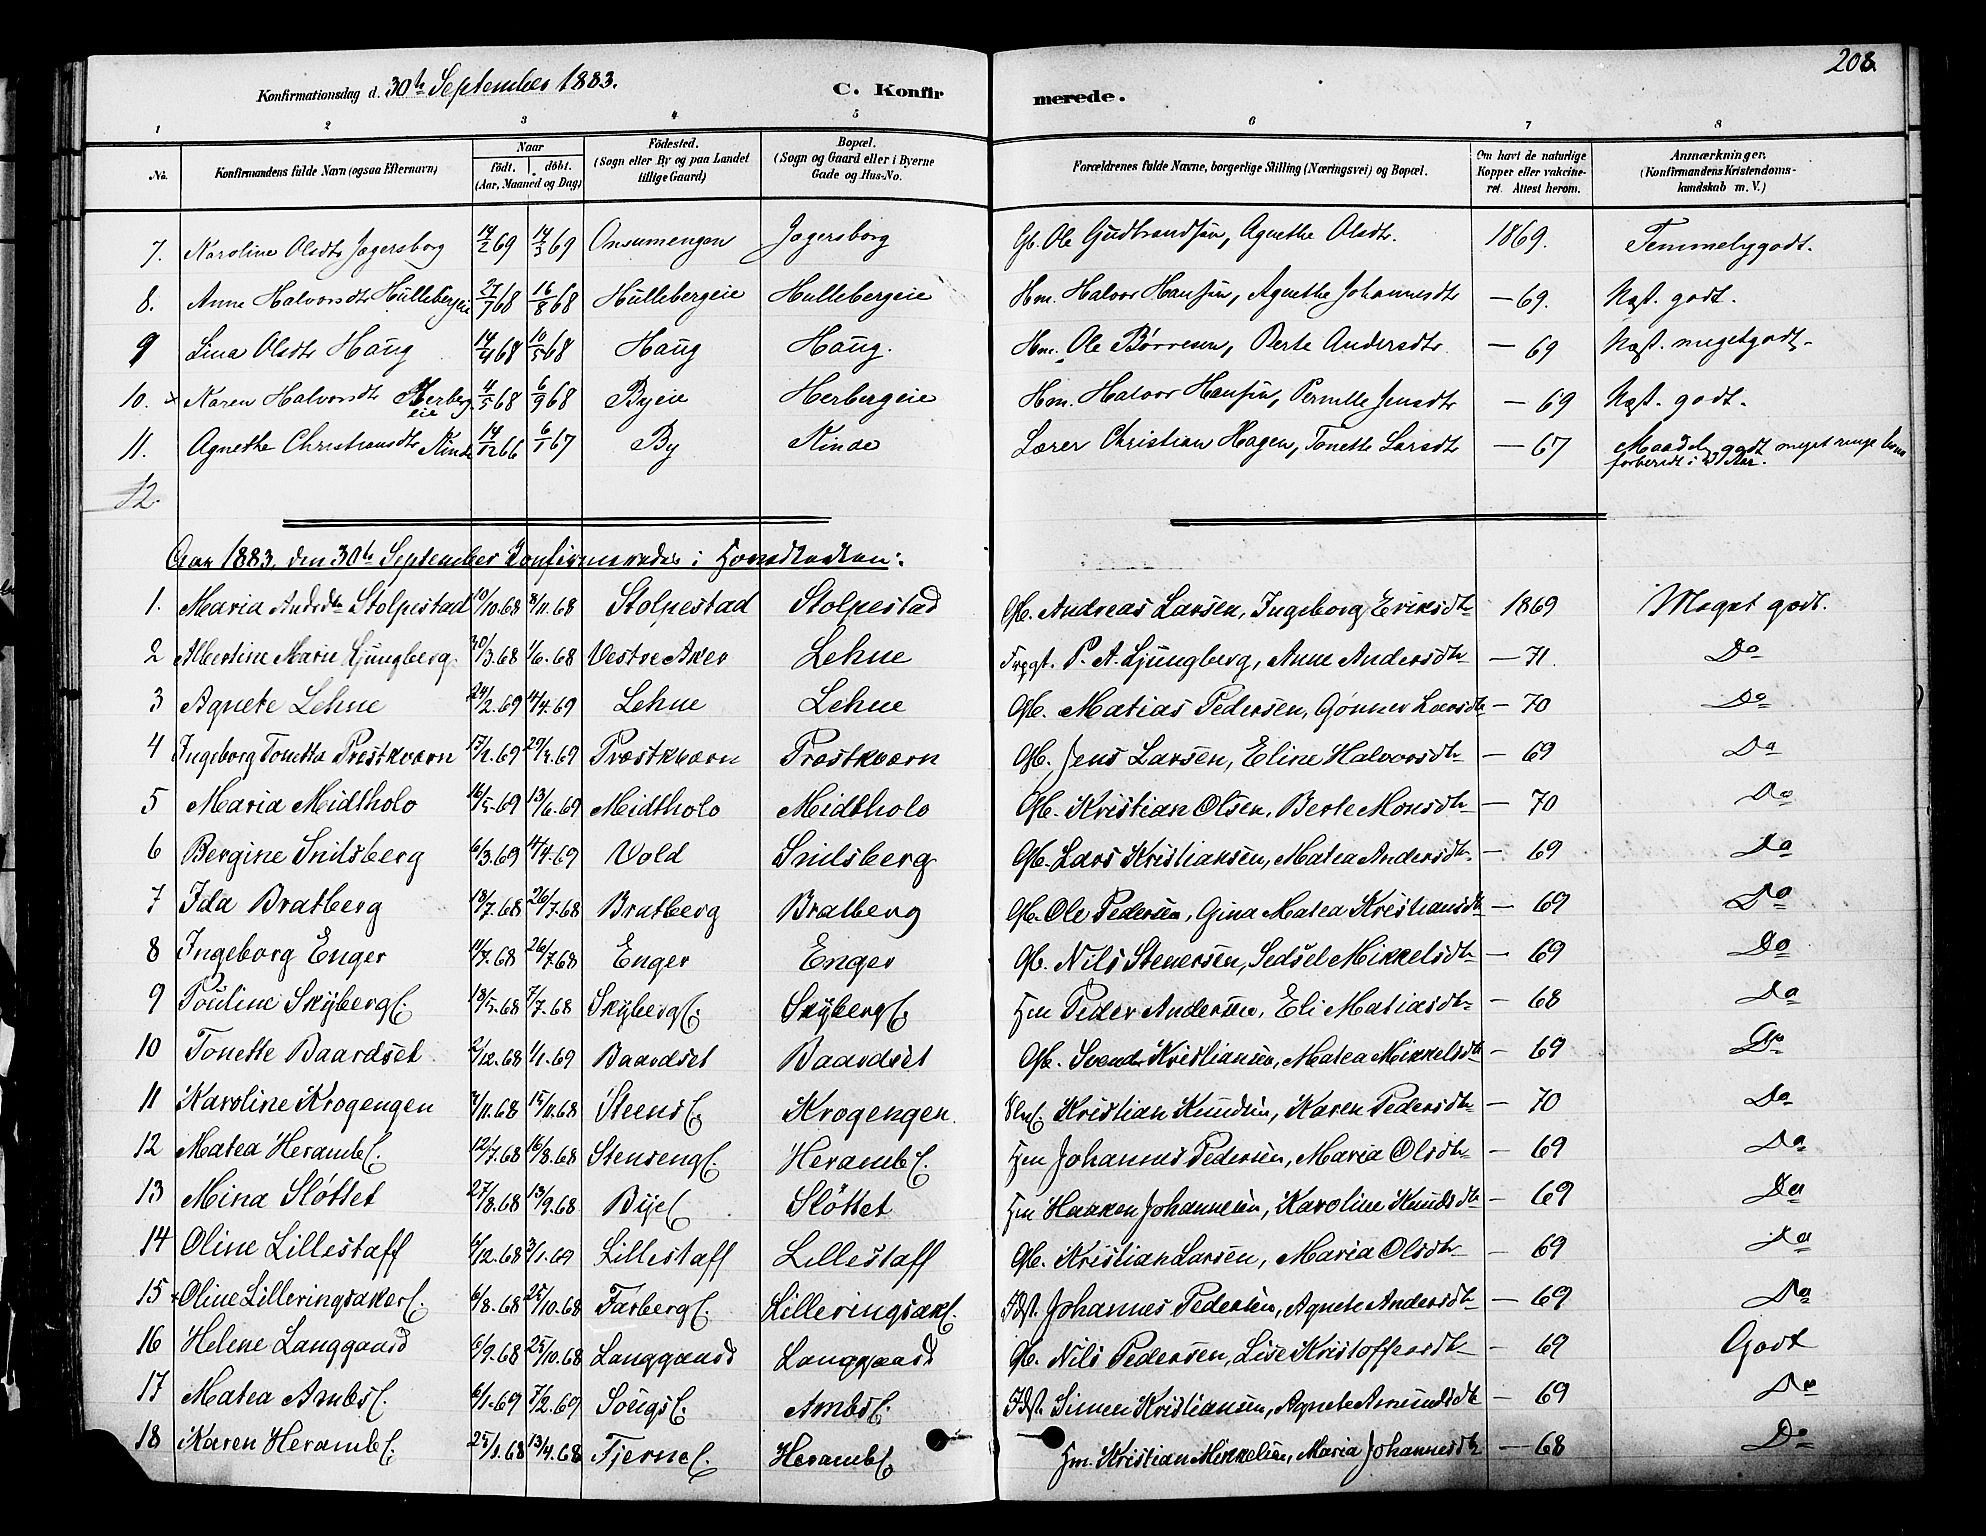 208.
Konfirmationsdag d. 30te September 1883. C. Konfirmerede.
1 2 3 4 5 6 7 8
No. Konfirmandens fulde Navn (ogsaa Efternavn) Naar født. døbt. (Aar, Maaned og Dag) Fødested. (Sogn eller By og paa Landet tillige Gaard) Bopæl. (Sogn og Gaard eller i Byerne Gade og Hus-No. Forældrenes fulde Navne, borgerlige Stilling (Næringsvei) og Bopæl. Om havt de naturlige Kopper eller vakcineret. Attest herom. Anmærkninger. (Konfirmandens Kristendomskundskab m. V.)
7. Karoline Olsdtr Jagersborg 14/2 69 14/3 69 Onsumengen Jagersborg Gb. Ole Gudbrandsen, Agnethe Olsdtr. 1869. Temmelig godt.
8. Anne Halvorsdtr Hullebergeie 27/7 68 16/8 68 Hullebergeie Hullebergeie Hm. Halvor Hansen, Agnethe Johannesdtr – 69. Næst. godt.
9 Lina Olsdtr Haug 14/4 68 10/5 68 Haug Haug. Hm. Ole Børresen, Berte Andersdtr – 69 Næst. meget godt.
10. × Karen Halvorsdtr Herbergeie 4/5 68 6/9 68 Byeie Herbergeie Hm. Halvor Hansen, Pernille Jensdtr – 69 Næst. godt.
11. Agnethe Christiansdtr Kinde 14/12 66 6/1 67 By Kinde Lærer Christian Hagen, Tonette Larsdtr – 67 Maadelig godt meget ringe forberedt i Aar.
12.
Aar 1883. den 30te September Konfirmerede i Hovedkirken:
1. Maria Andrdtr Stolpestad 10/10.68 8/11.68 Stolpestad Stolpestad Gb. Andreas Larsen, Ingeborg Eriksdtr 1869 Meget godt.
2 Albertine Marie Ljungberg. 30/3.68 1/6.68 Vestre Aker Lehne P. A. Ljungberg, Anne Andersdtr – 71. Do
3 Agnete Lehne 24/2.69 4/4.69 Lehne Lehne Gb. Matias Pedersen, Gønner Larsdtr – 70 Do
4 Ingeborg Tonetta Prestkværn 17/2.69 29/3.69 Præstkværn Præstkværn Gb. Jens Larsen, Eline Halvorsdtr – 69 Do
5 Maria Midtholo 16/5.69 13/6.69 Midtholo Midtholo Gb. Kristian Olsen, Berte Monsdtr – 70 Do
6 Bergine Snilsberg 6/3.69 4/4.69 Vold Snilsberg Gb. Lars Kristiansen, Matea Andersdtr. – 69 Do
7 Ida Bratberg 18/7.68 26/7.68 Bratberg Bratberg Gb. Ole Pedersen, Gina Matea Kristiansdtr – 69 Do
8 Ingeborg Enger 11/7.68 26/7.68 Enger Enger Gb. Nils Stenersen, Sedsel Mikkelsdtr – 69 Do
9 Pouline Skyberg E. 18/5.68 7/7.68 Skyberg E. Skyberg E. Hm Peder Andersen, Eli Matiasdtr – 68 Do
10 Tonette Baardset. 2/12.68 1/1.69 Baardset Baardset Gb. Svend Kristiansen, Matea Mikkelsdtr – 69 Do
11 Karoline Krogengen 3/11.68 15/11.68 Steens E. Krogengen. Kristian Knudsen, Karen Pedersdtr – 70 Do
12 Matea Heramb E. 12/7.68 16/8.68 Stenseng E. Heramb E. Hm Johannes Pedersen, Maria Olsdtr – 69 Do
13 Mina Sløttet 27/8.68 13/9.68 Bye E Sløttet Hm Haaken Johannesen, Karoline Knudsdtr – 69 Do
14 Oline Lillestaff 4/12.68 3/1.69 Lillestaff Lillestaff Gb. Kristian Larsen, Maria Olsdtr – 69 Do
15 × Oline Lilleringsaker E. 6/8.68 25/10.68 Farberg E. Lilleringsak E. Idst. Johannes Pedersen, Agnete Andersdtr – 69 Do
16 Helene Langgaard 6/9.68 25/10.68 Langgaard Langgaard Gb. Nils Pedersen, Lise Kristoffersdtr – 69 Godt
17 Matea Ambs E. 6/1.69 7/2.69 Sougs E. Ambs E. Idst. Simen Kristiansen, Agnete Amundsdtr – 69 Do
18 Karen Heramb E. 25/1.68 13/4.68 Fjerne E. Heramb E. Hm. Kristian Mikkelsen, Maria Johannesdtr – 68 Do